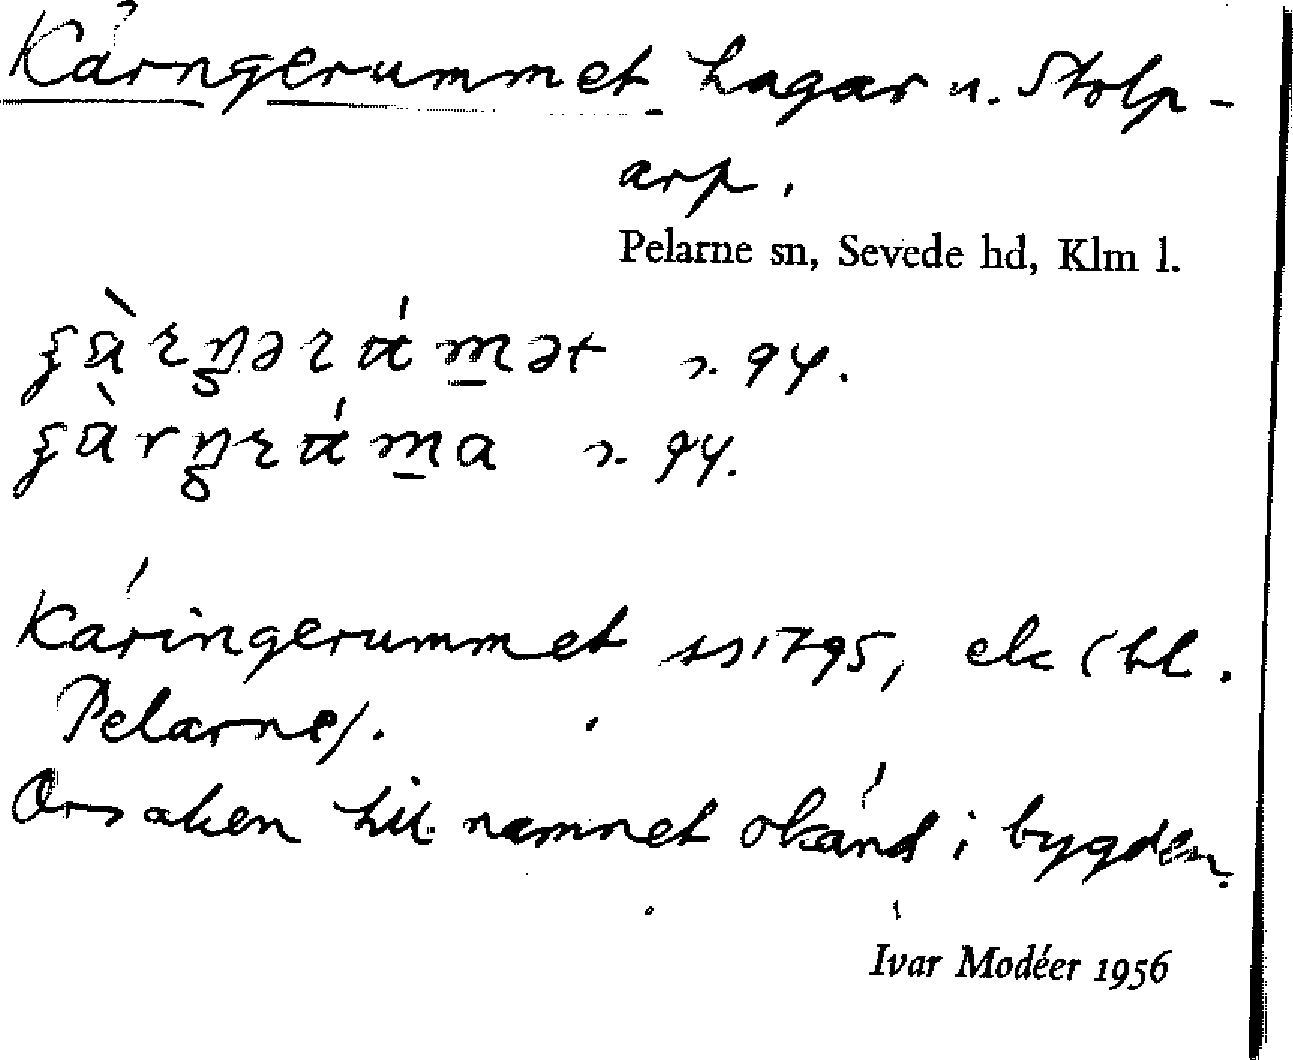 Kärngerummet hagar u. Stolp-
arp.
Pelarne sn, Sevede hd, Klm l.
94.
94.
Käringerummet 1795, ek (bl.
Pelarne).
Orsaken till namnet okänd i bygden.
Ivar Modéer 1956